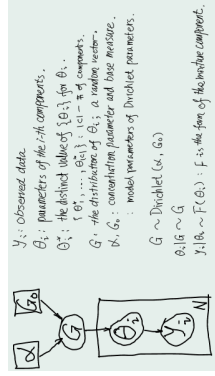 α
G₀
G
θᵢ
Yᵢ
N
Yᵢ : observed data
θᵢ : parameters of the i-th components.
θᵢ* : the distinct value of {θᵢ} for θᵢ.
{θ₁*, ..., θ|c|*} : |c| - # of components.
G : the distribution of θᵢ, a random vector.
α, G₀ : concentration parameter and base measure.
: model parameters of Dirichlet parameters.
G ~ Dirichlet (α, G₀)
θᵢ|G ~ G
Yᵢ|θᵢ ~ F(θᵢ) : F is the form of the mixture component.